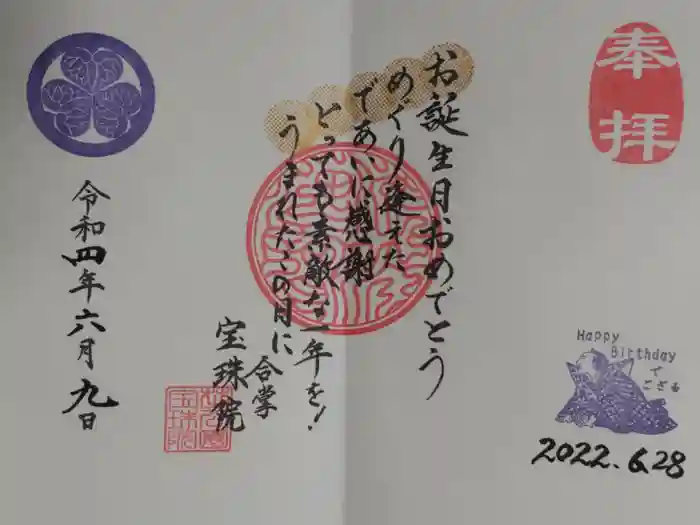 奉拝
お誕生日おめでとう
めぐり逢えた
であいに感謝
とっても素敵な一年を!
うまれたこの日に
合掌
宝珠院
令和四年六月九日
Happy
Birthday
で
ござる
2022.6.28